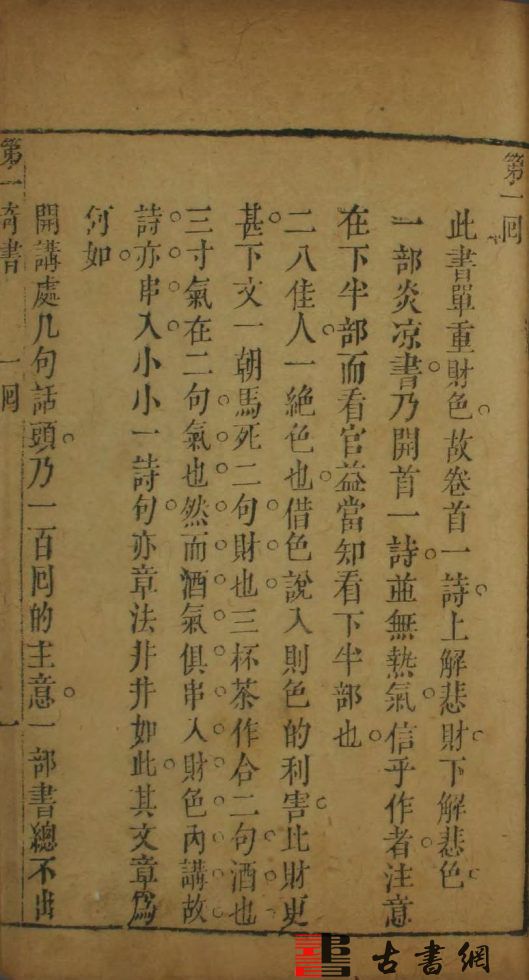 第一回
此書單重財色故卷首一詩上解悲財下解悲色
一部炎凉書乃開首一詩並無熱氣信乎作者注意
在下半部而看官益當知看下半部也
二八佳人一絕色也借色說入則色的利害比財更
甚下文一朝馬死二句財也三杯茶作合二句酒也
三寸氣在二句氣也然而酒氣俱串入財色內講故
詩亦串入小小一詩句亦章法井井如此其文章為
何如
開講處几句話頭乃一百回的主意一部書總不出
第一奇書 一回 一
古書網